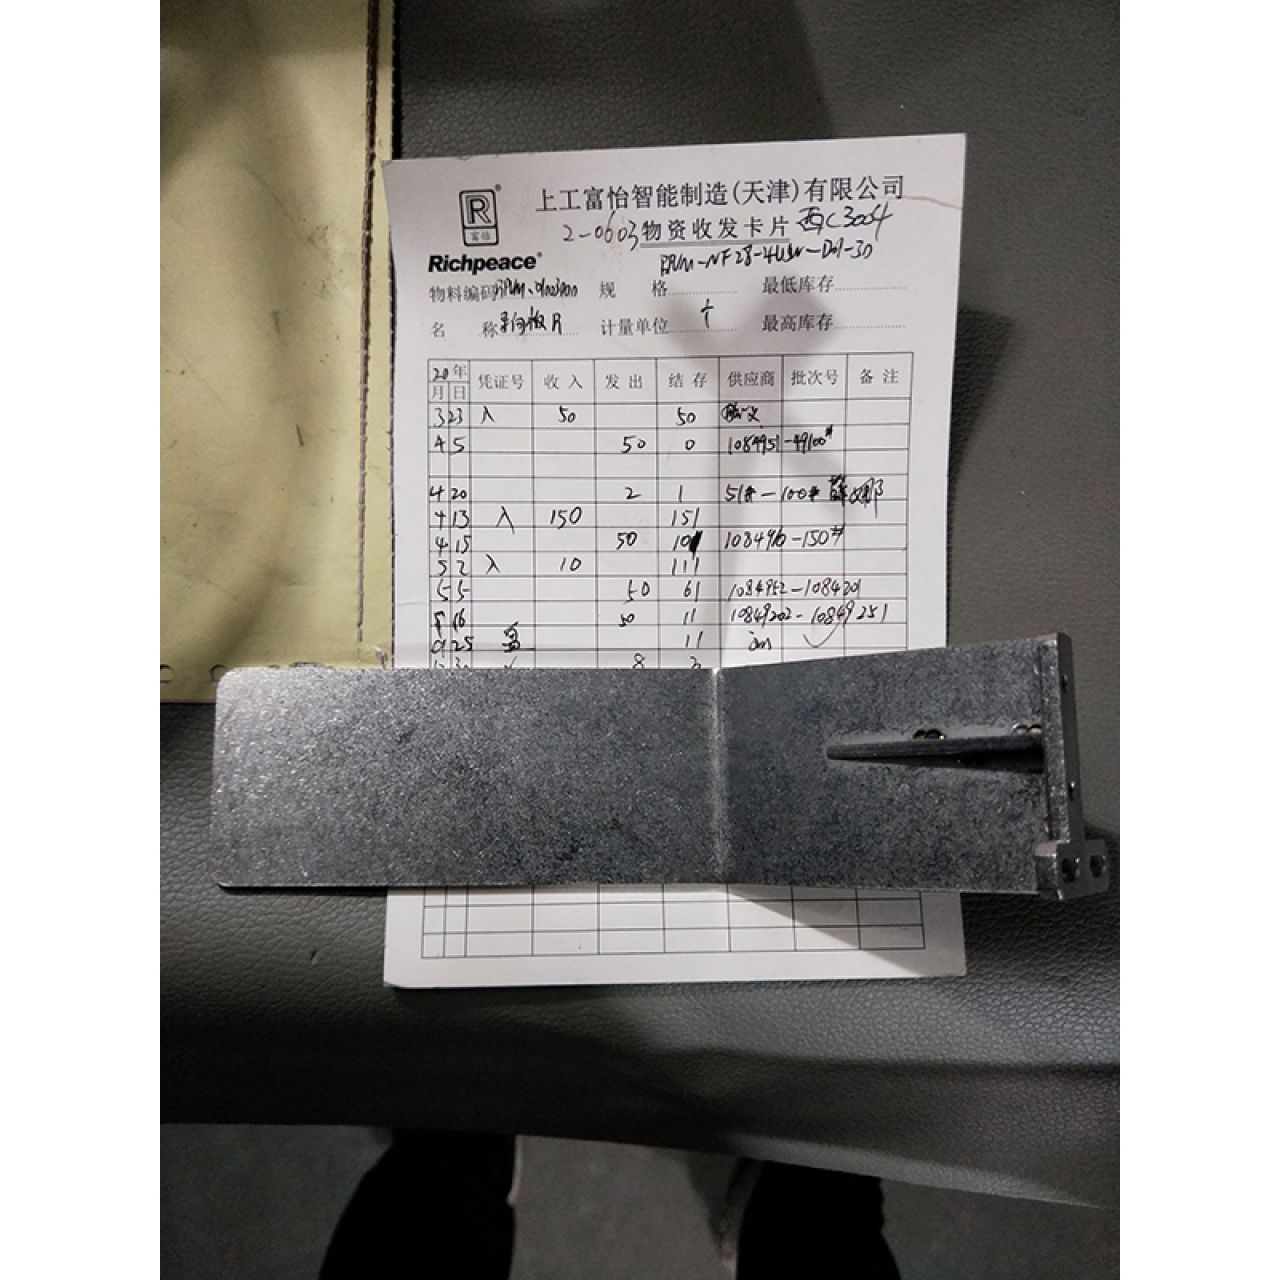 上工富怡智能制造(天津)有限公司
R®
富怡
2-0603 物资收发卡片 西C3004
Richpeace®
规 格 最低库存
物料编码
名 称 片 计量单位 个 最高库存
20年 凭证号 收入 发出 结存 供应商 批次号 备注
月 日
3 23 入 50 50
4 5 50 0 1084951-49100#
4 20 2 1 51#-100#
4 13 入 150 151
4 15 50 101 -150#
5 2 入 10 111
5 5 50 61 1084952-1084201
16 50 11 10849202-10849251
9 25 盘 11
8 3